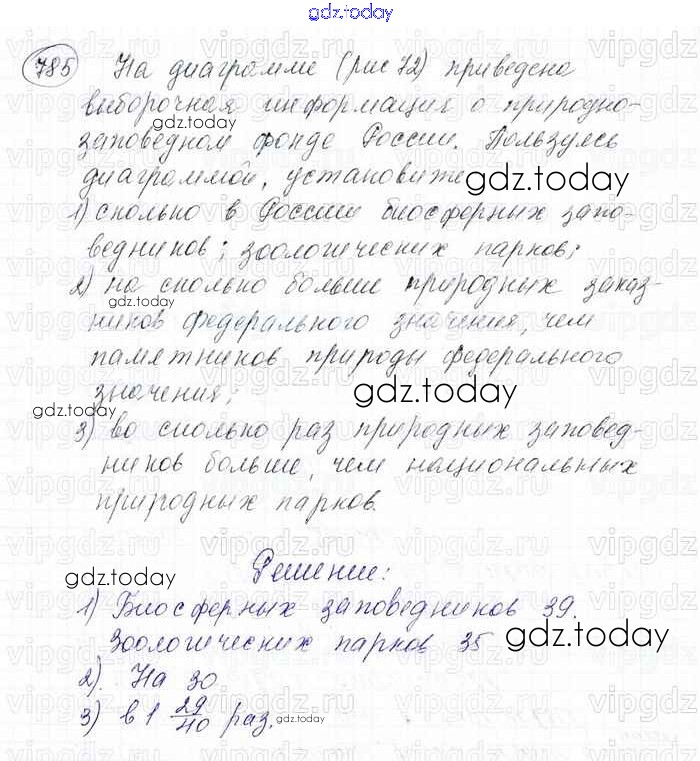 gdz.today
785 На диаграмме (рис 72) приведена
выборочная информация о природно-
gdz.today
заповедном фонде России. Пользуясь
диаграммой, установите gdz.today
1) сколько в России биосферных запо-
ведников; зоологических парков;
2) на сколько больше природных заказ-
gdz.today
ников федерального значения, чем
памятников природы федерального
значения; gdz.today
gdz.today
3) во сколько раз природных заповед-
ников больше, чем национальных
природных парков.
Решение:
gdz.today
1) Биосферных заповедников 39.
Зоологических парков 35 gdz.today
2). На 30
3) в 1 29/40 раз. gdz.today